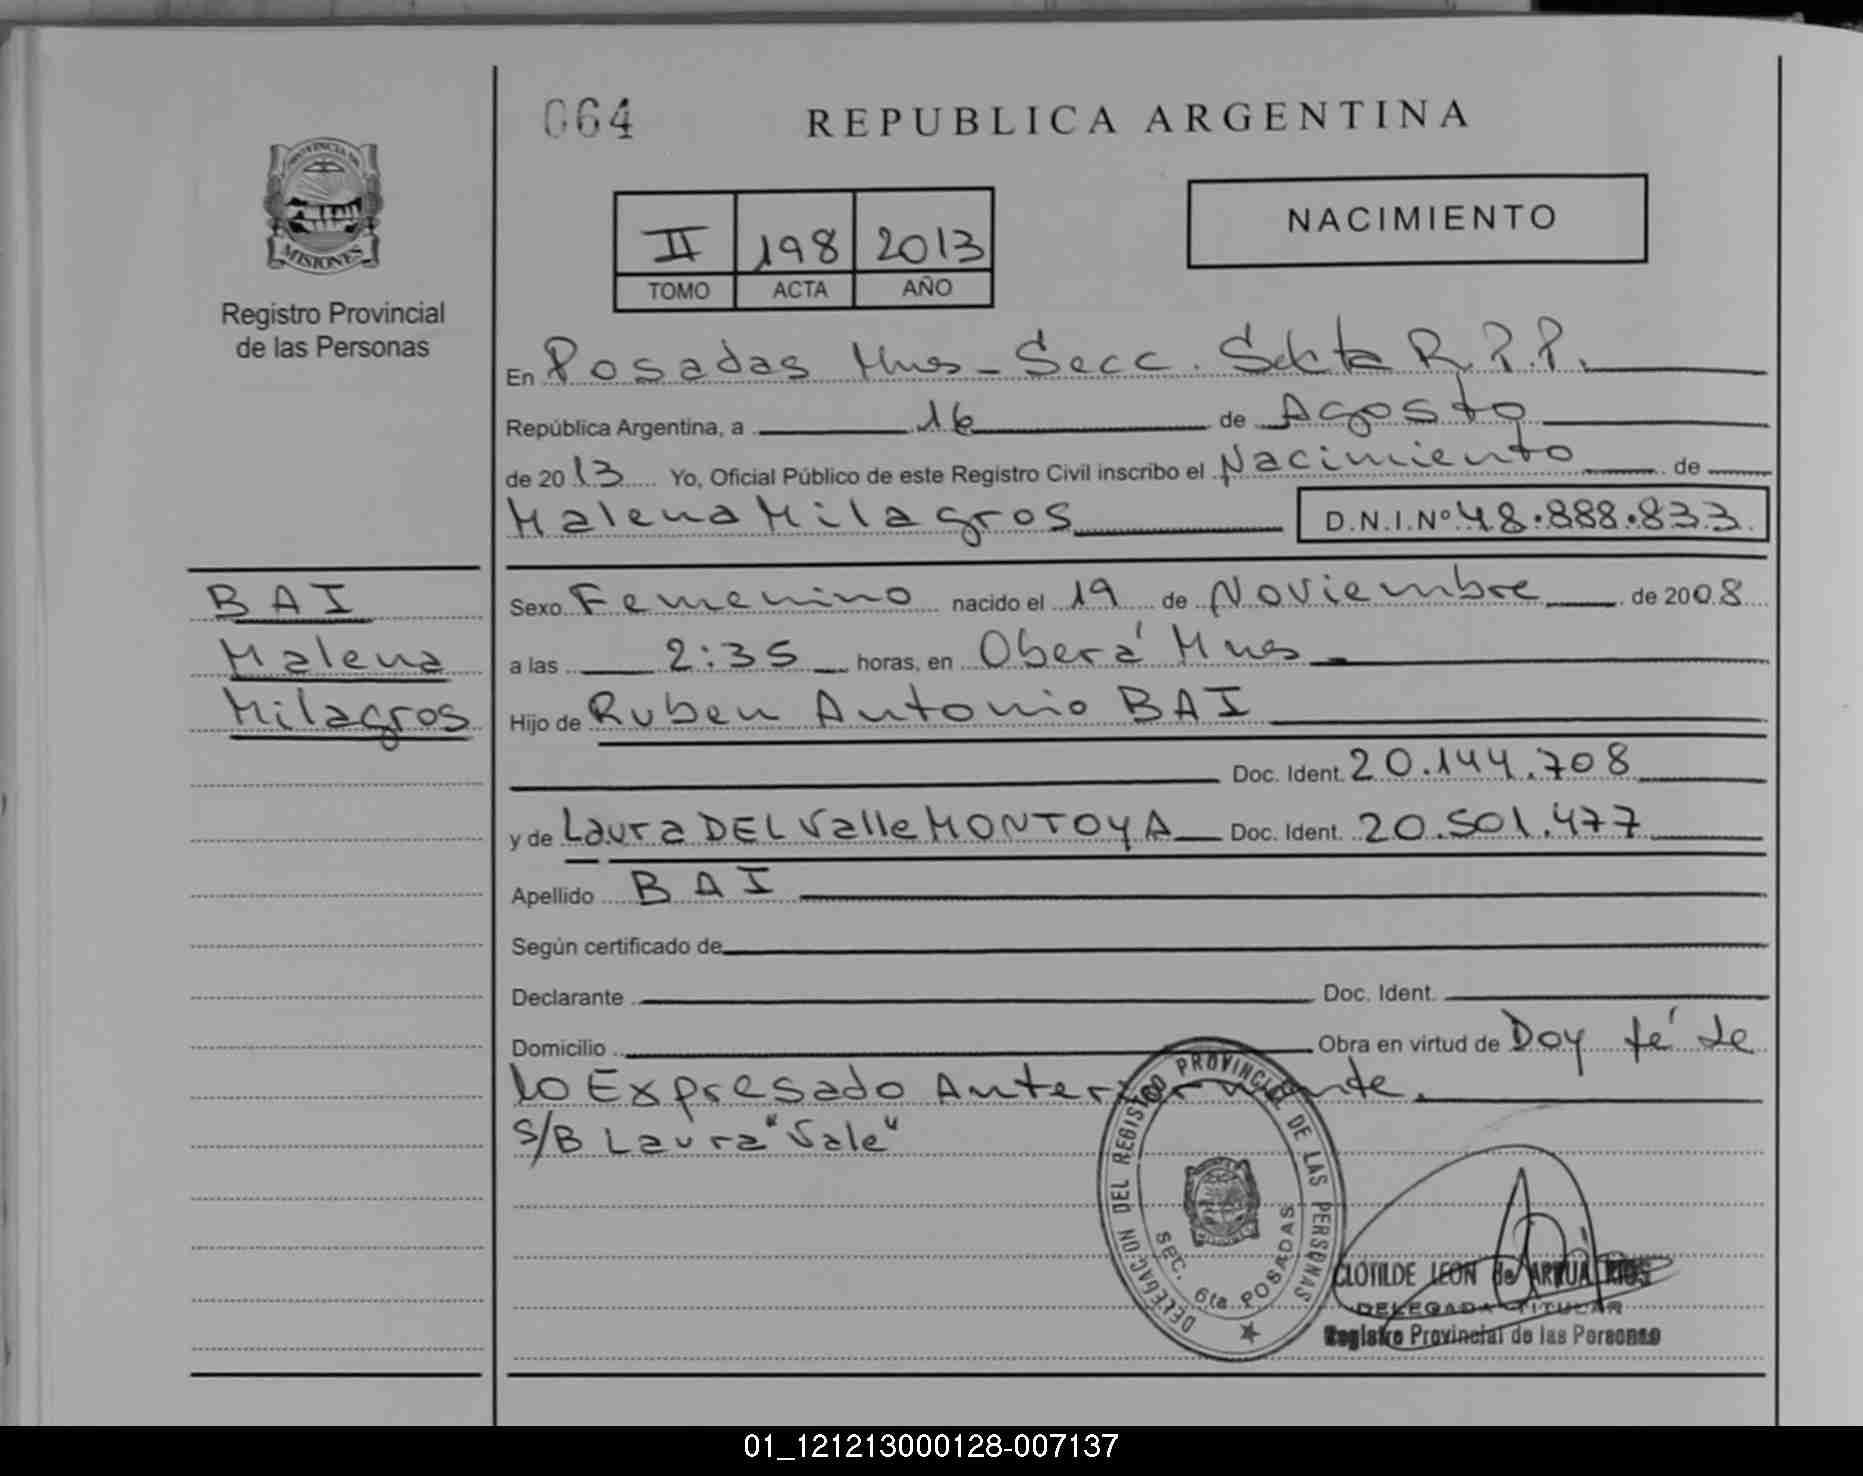 064
REPUBLICA ARGENTINA
PROVINCIA DE
MISIONES
Registro Provincial
de las Personas
II 198 2013
TOMO ACTA AÑO
NACIMIENTO
En Posadas Mnes - Secc. Sexta R.P.P.
República Argentina, a 16 de Agosto
de 2013 Yo, Oficial Público de este Registro Civil inscribo el Nacimiento de
Malena Milagros D.N.I.Nº 48.888.833
BAI
Malena
Milagros
Sexo Femenino nacido el 19 de Noviembre de 2008
a las 2:35 horas, en Oberá Mnes -
Hijo de Ruben Antonio BAI
Doc. Ident. 20.144.708
y de Laura DEL Valle MONTOYA Doc. Ident. 20.501.477
Apellido BAI
Según certificado de
Declarante Doc. Ident.
Domicilio Obra en virtud de Doy fé de
lo Expresado Anteriormente.
S/B Laura "Vale"
DELEGACION DEL REGISTRO PROVINCIAL DE LAS PERSONAS
SEC. 6ta POSADAS
CLOTILDE LEON de ARRUA RIOS
DELEGADA TITULAR
Registro Provincial de las Personas
01_121213000128-007137